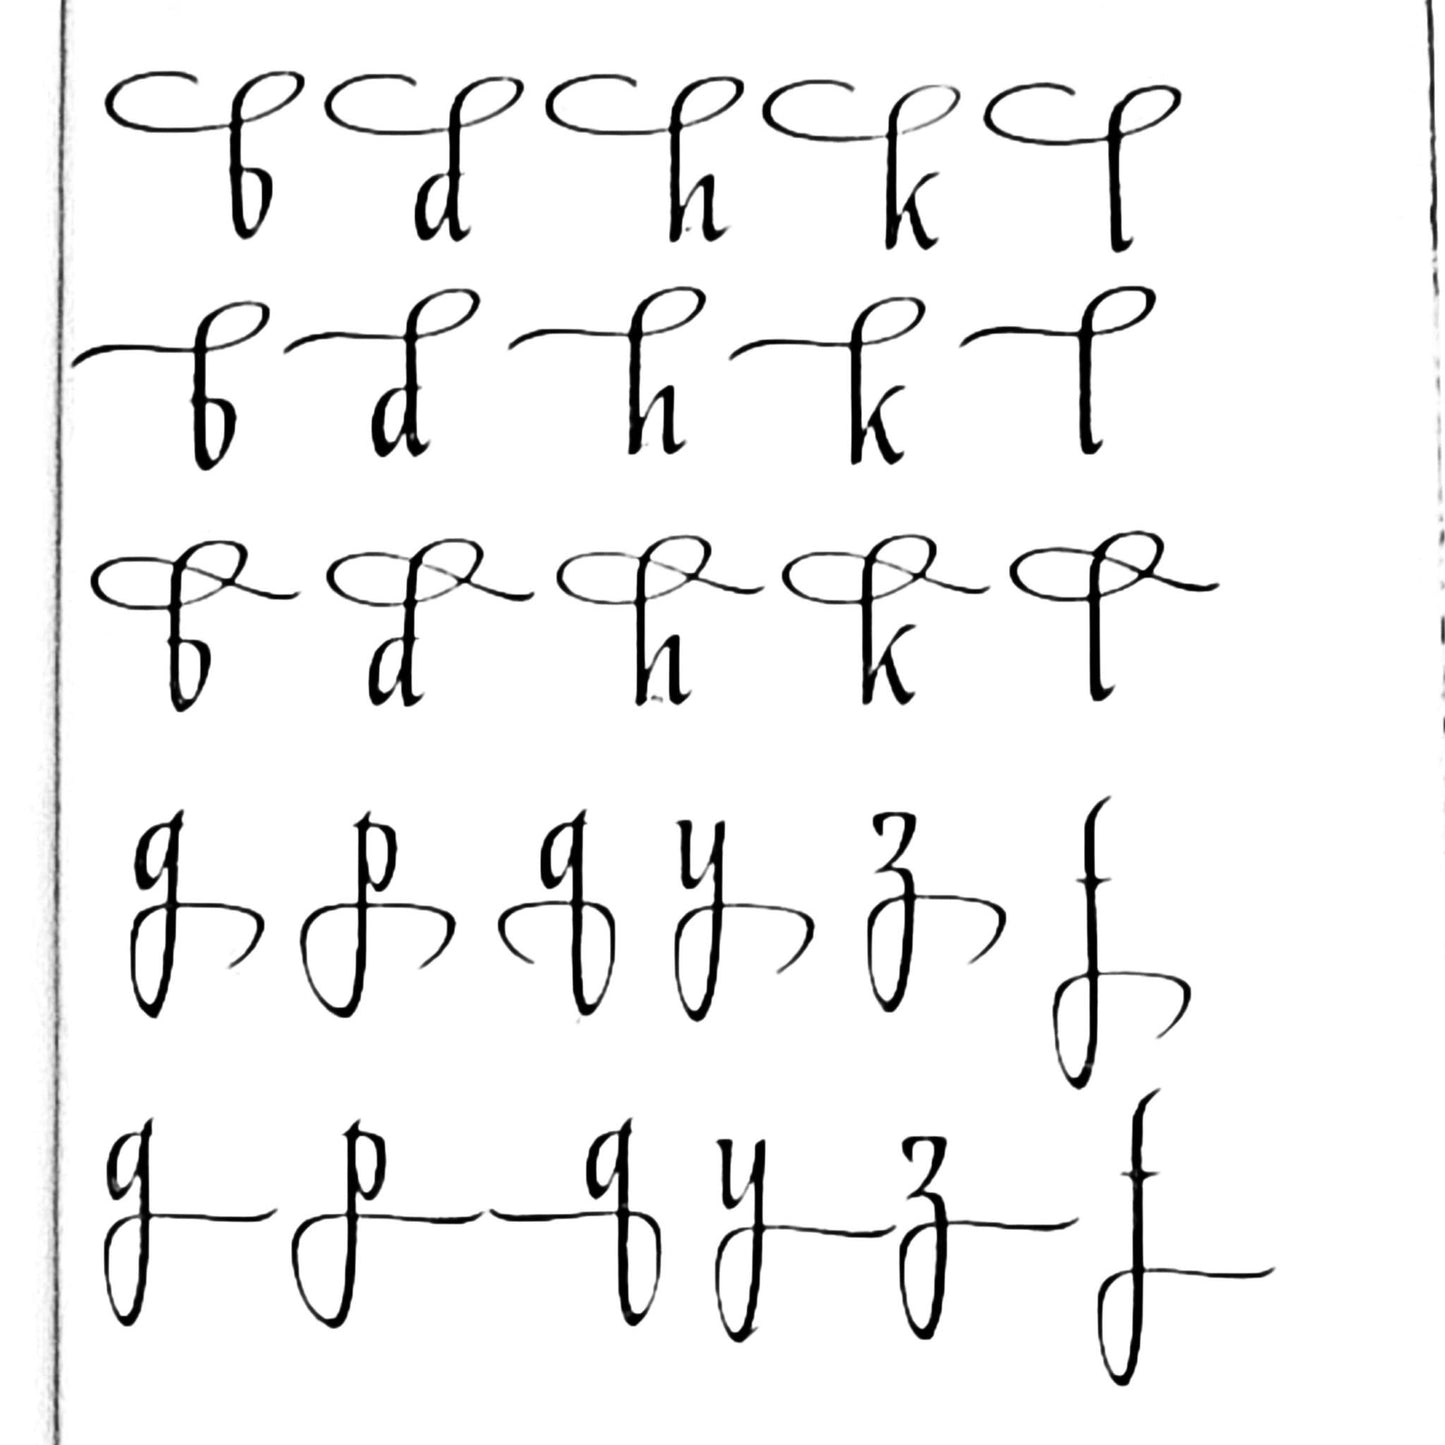 b d h k l
b d h k l
b d h k l
g p q y z f
g p q y z f